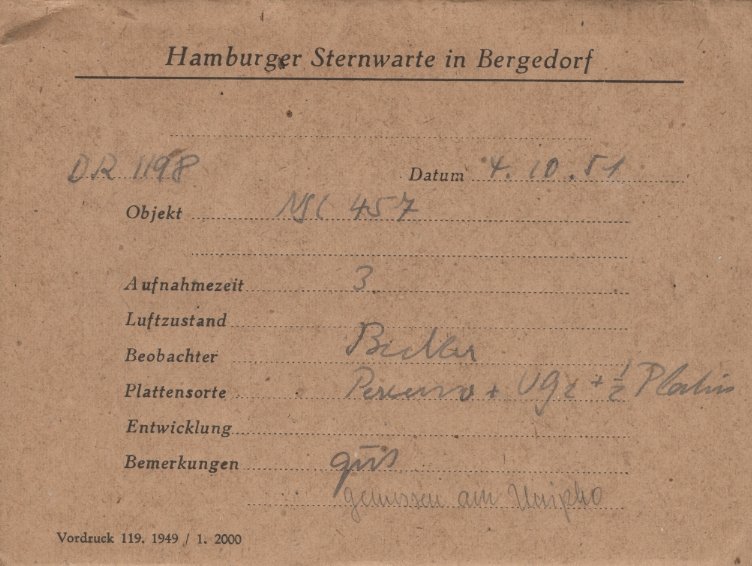 Hamburger Sternwarte in Bergedorf
DR 1198 Datum 4. 10. 51
Objekt NGC 457
Aufnahmezeit 3
Luftzustand
Beobachter
Plattensorte + UG2 + 1/2 Platin
Entwicklung
Bemerkungen gut
gemessen am Unipho
Vordruck 119. 1949 / 1. 2000